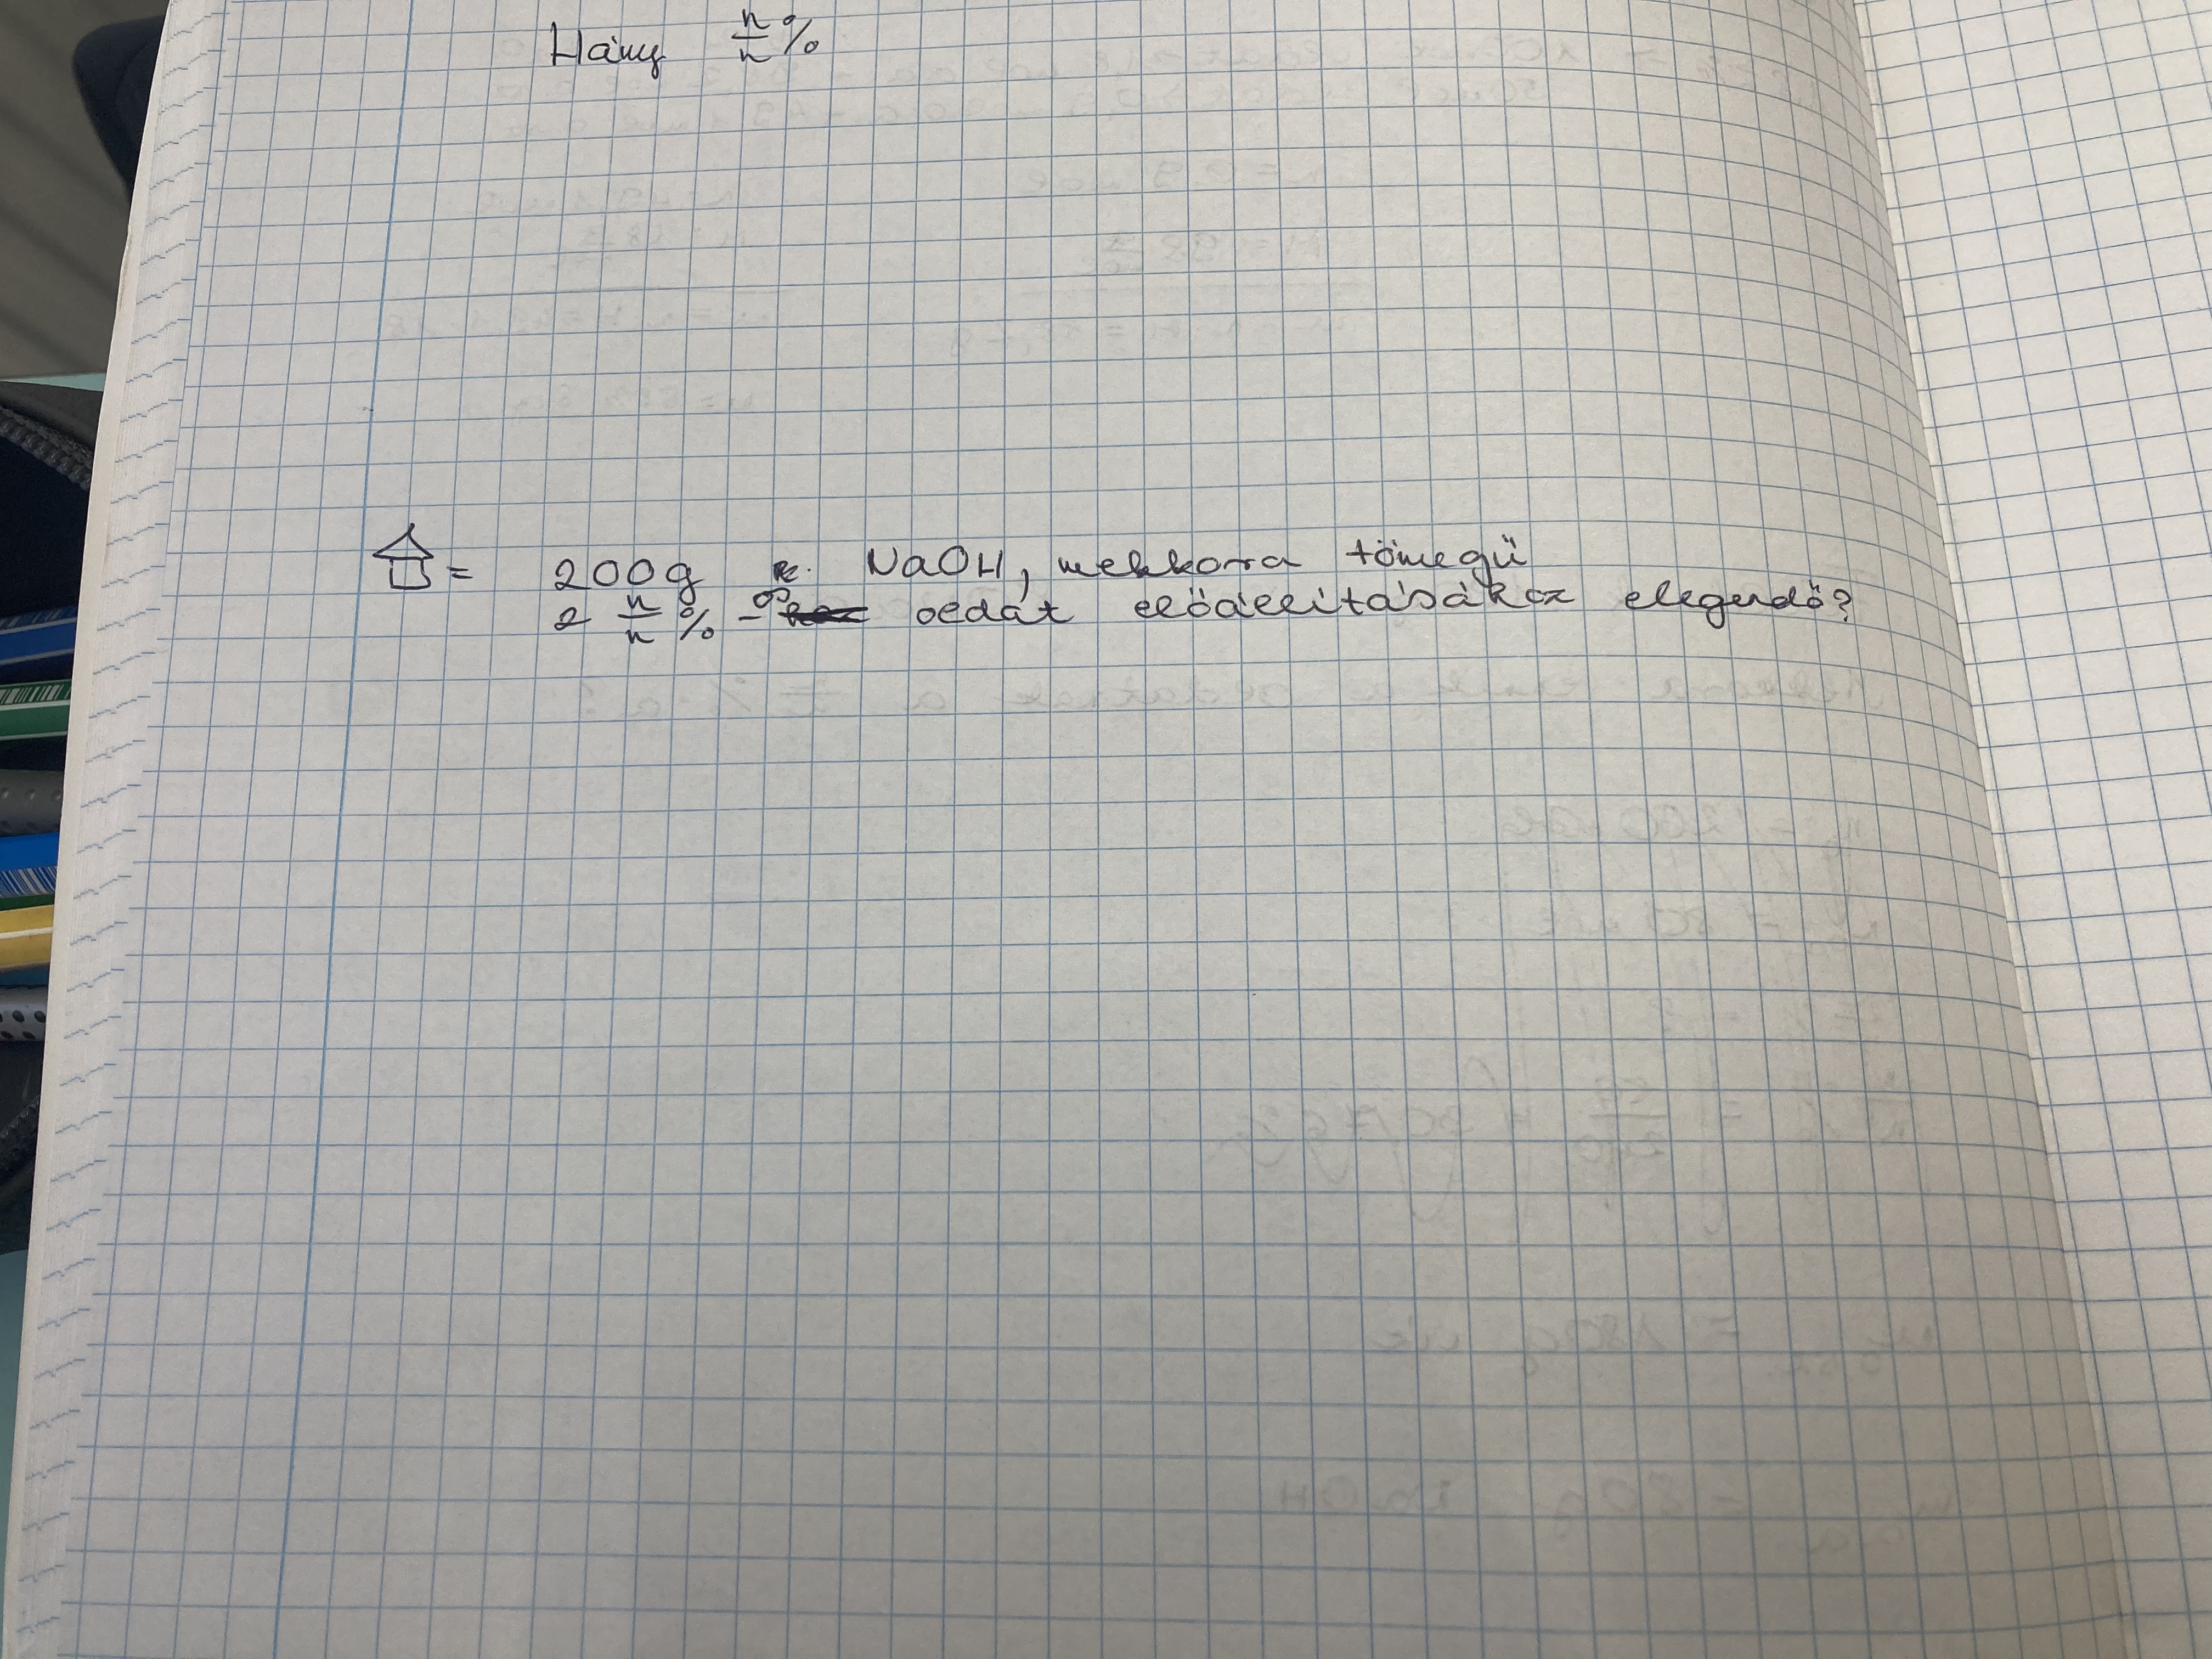 Hány n/n %
= 200g NaOH, mekkora tömegű
2 n/n % -os oldat előállításához elegendő?